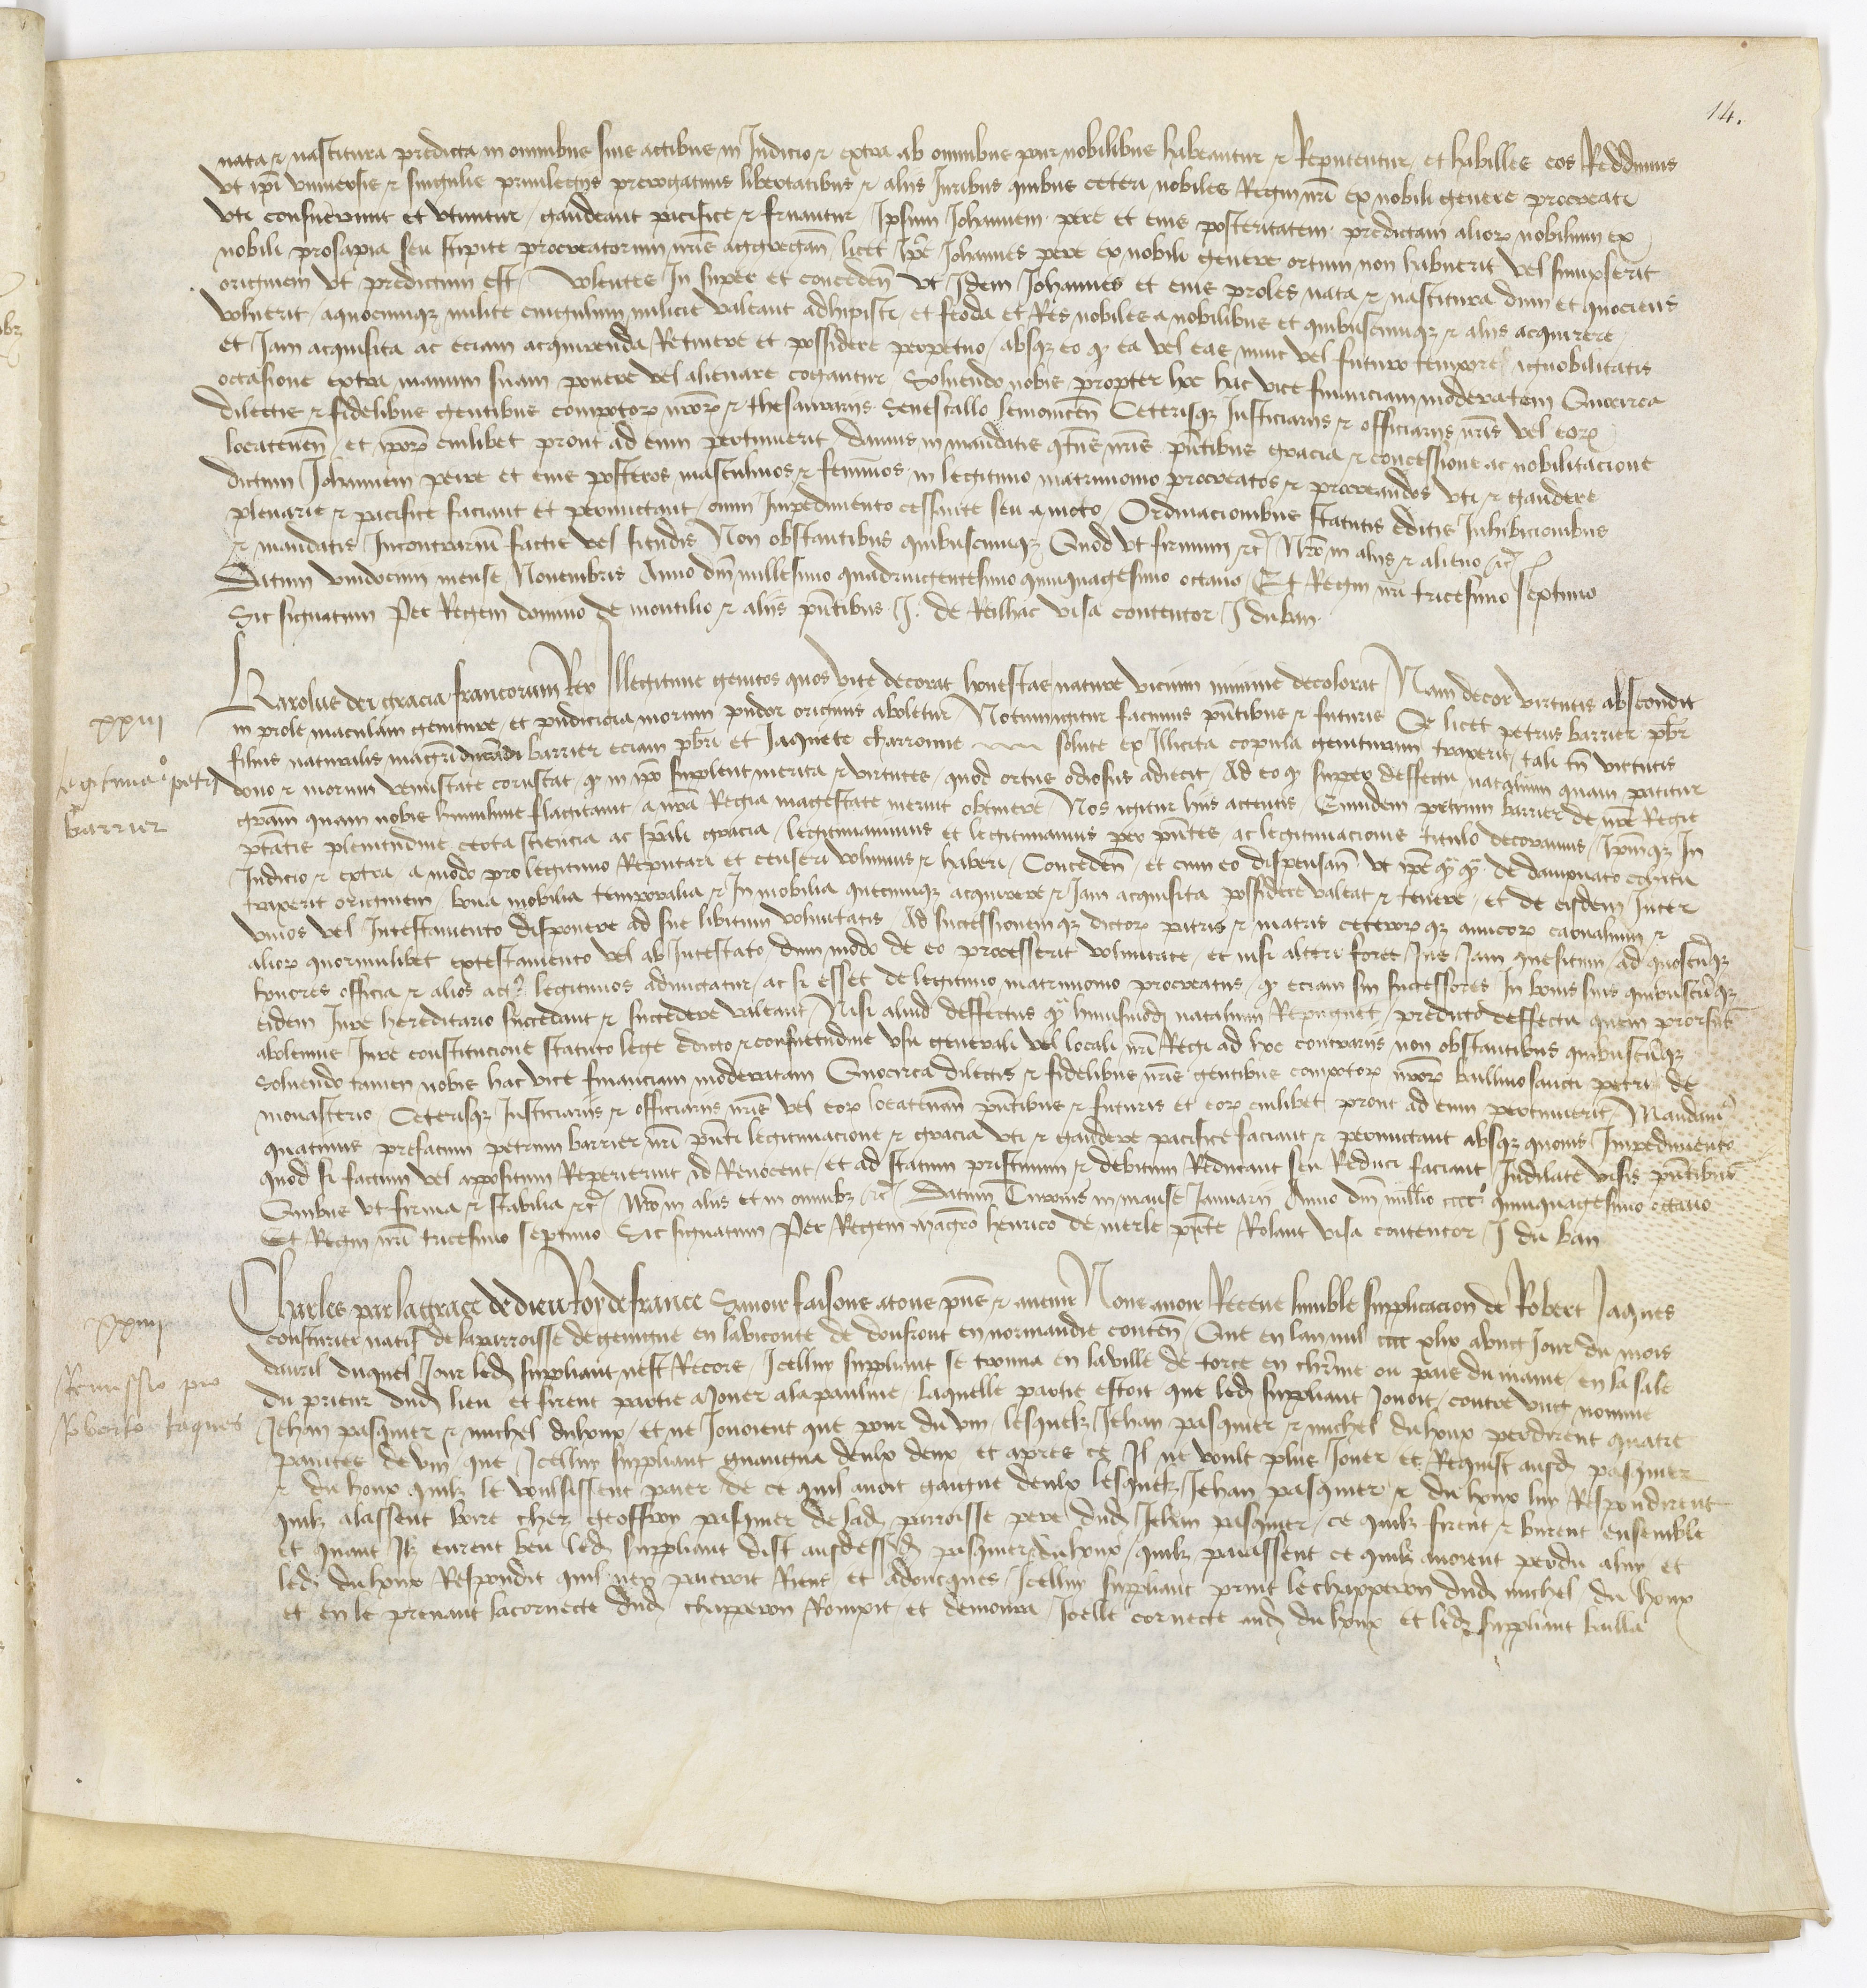 14.
nata et nascitura predicta in omnibus suis actibus in Iudicio et extra ab omnibus pro nobilibus habeantur et Reputentur et habilles eos Reddimus
vt ipsi vniuersis et singulis priuilegiis prerogatiuis libertatibus et aliis Iuribus quibus ceteri nobiles Regni nostri ex nobili genere procreati
vti consueuerunt et vtuntur gaudeant pacifice et fruantur Ipsum Iohannem pere et eius posteritatem predictam aliorum nobilium ex
nobili prosapia seu stipite procreatorum numero aggregantes licet ipse Iohannes pere ex nobili genere ortum non habuerit vel sumpserit
originem vt predictum est Volentes In super et concedentes vt Idem Iohannes et eius proles nata et nascitura dum et quociens
voluerit aquocumque milite cingulum milicie valeant adhipisci et feoda et Res nobiles a nobilibus et quibuscumque et aliis acquirere
et Iam acquisita ac eciam acquirenda Retinere et possidere perpetuo absque eo quod ea vel eas nunc vel futuro tempore ignobilitatis
occasione extra manum suam ponere vel alienare cogantur Soluendo nobis propter hoc hac vice financiam moderatam Quocirca
dilectis et fidelibus gentibus compotorum nostrorum et thesaurariis Senescallo lemouicensi Ceterisque Iusticiariis et officiariis nostris vel eorum
locatenentibus et ipsorum cuilibet prout ad eum pertinuerit damus in mandatis quatinus nostris presentibus gracia et concessione ac nobilitacione
dictum Iohannem peire et eius posteros masculinos et femininos in legitimo matrimonio procreatos et procreandos vti et gaudere
plenarie et pacifice faciant et permictant omni Impedimento cessante seu amoto Ordinacionibus statutis edictis Inhibicionibus
et mandatis Incontrarium factis vel fiendis Non obstantibus quibuscumque Quod vt firmum etc Nostro in aliis et alieno etc
Datum vindocini mense Nouembris Anno domini millesimo quadringentesimo quinquagesimo octauo Et Regni nostri tricesimo septimo
Sic signatum Per Regem domino de montilio et aliis presentibus J. de Reilhac visa contentor J du ban

xxiii
legitimacio petri
barrier
Karolus dei gracia francorum Rex Illegitime genitos quos vite decorat honestas nature vicium minime decolorat Nam decor virtutis abscondit
in prole maculam geniture et pudicicia morum pudor originis aboletur Notum igitur facimus presentibus et futuris Quod licet petrus barrier presbiter
filius naturalis magistri durandi barrier eciam presbiteri et Iaquete charronne solute ex Illicita copula genituram traxerit tali tamen virtutis
dono et morum venustate coruscat quod in ipso suplent merita et virtutes quod ortus odiosus adiecit Ad eo quod super deffectu natalium quam patitur
graciam quam nobis humiliter flagitauit a nostra Regia magestate meruit obtinere Nos igitur hiis actentis Eumdem petrum barrier de nostre Regie
potestatis plenitudine certa sciencia ac speciali gracia legitimauimus et legitimamus per presentes ac legitimacionis titulo decoramus Ipsumque In
Iudicio et extra a modo pro legitimo Reputari et censeri volumus et haberi Concedentes et cum eo dispensantes vt ipse quamquam de dampnato cohitu
traxerit originem bona mobilia temporalia et In mobilia quecumque acquirere et Iam acquisita possidere valeat et tenere et de eisdem Inter
viuos vel Intestamento disponere ad sue libitum voluntatis Ad successionemque dictorum patris et matris ceterorumque amicorum carnalium et
aliorum quorumlibet extestamento vel ab Intestato dum modo de eo processerit voluntate et nisi alteri foret Ius Iam quesitum ad quoscumque
honores officia et alios actus legitimos admictatur ac si esset de legitimo matrimonio procreatus quod eciam sui successores In bonis suis quibuscumque
eidem Iure hereditario succedant et succedere valeant Nisi aliud deffectus quam huiusmodi natalium Repugnet predicto deffectu quem prorsus
abolemus Iure constitucione statuto lege edicto et consuetudine vsu generali vel locali nostri Regni ad hoc contrariis non obstantibus quibuscumque
Soluendo tamen nobis hac vice financiam moderatam Quocirca dilectis et fidelibus nostris gentibus compotorum nostrorum balliuo sancti petri de
monasterio Ceterisque Iusticiariis et officiariis nostris vel eorum locatenentibus presentibus et futuris et eorum cuilibet prout ad eum pertinuerit Mandamus
quatinus prefatum petrum barrier nostri presenti legitimacione et gracia vti et gaudere pacifice faciant et permictant absque quouis Impedimento
quod si factum vel appositum Reperierint id Reuocent et ad statum pristinum et debitum Reducant seu Reduci faciant Indilate visis presentibus
Quibus vt firma et stabilia etc Nostro in aliis et in omnibus etc Datum Turonis in mense Ianuarii Anno domini millesimo cccc quinquagesimo octauo
Et Regni nostri tricesimo septimo Sic signatum Per Regem magistro henrico de merle presente Rolant visa contentor J du ban

xxiiii
Remissio pro
Roberto Iaques
Charles par la grace de dieu Roy de france Sauoir faisons atous presens et auenir Nous auoir Receue lumble supplicacion de Robert Iaques
consturier natif de laparroisse de genigne en la viconte de donfront en normandie contenant Que en lan mil cccc xlix a vng Iour du mois
dauril duquel Iour ledit suppliant nest Recors Icellui suppliant se trouua en la ville de torce en charnie ou pais du maine en la sale
du prieur dudit lieu et firent partie a Iouer ala paulme laquelle partie estoit que ledit suppliant Iouoit contre vng nomme
Iehan pasquier et michel duhoux et ne Iouoient que pour du vin lesquelz Iehan pasquier et michel duhoux perdirent quatre
pauctes de vin que Icellui suppliant gaaigna deulx deux et apres ce Il ne voult plus Iouer et Requist ausdiz pasquier
et du houx quilz le voulsissent paier de ce quil auoit gaigne deulx lesquelz Iehan pasquier et du houx lui Respondirent
quilz alassent boire ches geoffroy pasquier de ladite parroisse pere dudit Iehan pasquier ce quilz firent et burent ensemble
et quant Ilz eurent beu ledit suppliant dist ausdessusdiz pasquier et duhoux quilz paiassent ce quilz auoient perdu alui et
ledit duhoux Respondit quil nen paieroit Riens et adoncques Icellui suppliant print le chapperon dudit michel du houx
et en le prenant la cornecte dudit chapperon Rompit et demoura Icelle cornecte audit du houx et ledit suppliant bailla